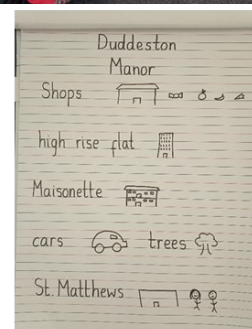 Duddeston
Manor
Shops
high rise flat
Maisonette
cars trees
St. Matthews